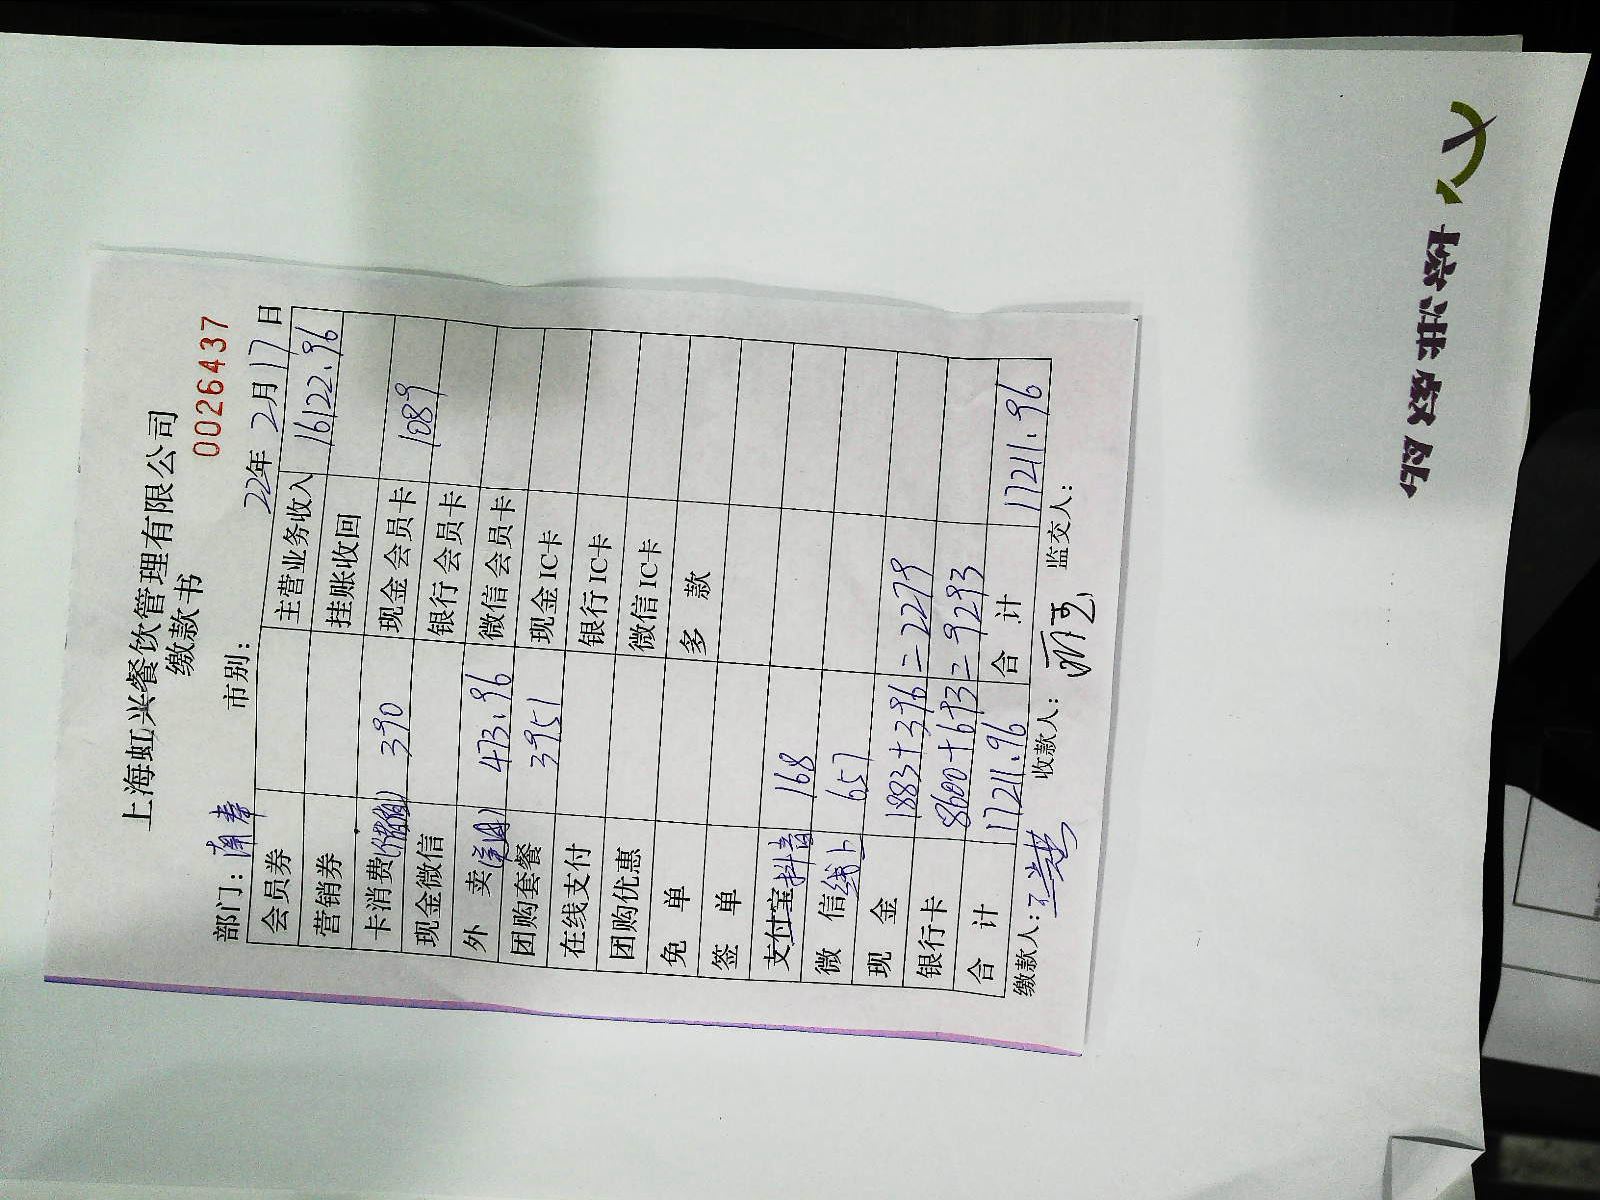 上海虹兴餐饮管理有限公司
缴款书 0026437
部门: 市别: 22年2月17日
会员券 主营业务收入 16122.96
营销券 挂账收回
卡消费 390 现金会员卡 1089
现金微信 银行会员卡
外 卖 473.96 微信会员卡
团购套餐 3951 现金IC卡
在线支付 银行IC卡
团购优惠 微信IC卡
免 单 多 款
签 单
支付宝抖音 168
微 信线上 657
现 金 1883+396=2279
银行卡 8600+693=9293
合 计 17211.96 合 计 17211.96
缴款人: 收款人: 监交人: